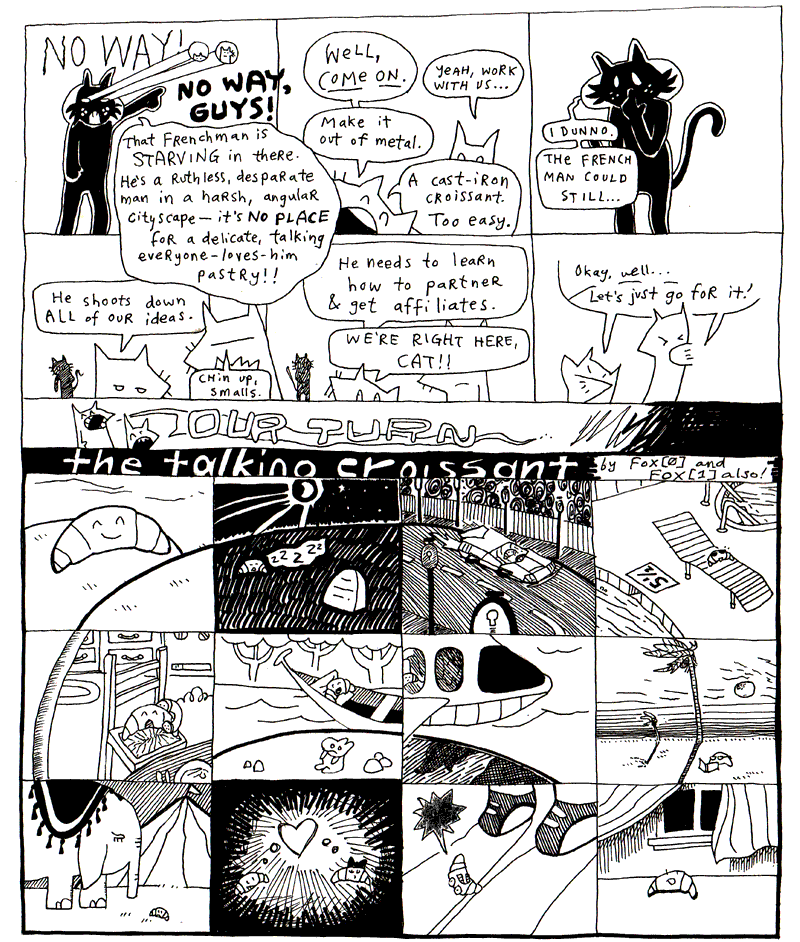 NO WAY!
NO WAY,
GUYS!
That Frenchman is
STARVING in there.
He's a Ruthless, desparate
man in a harsh, angular
cityscape — it's NO PLACE
for a delicate, talking
everyone-loves-him
pastry!!
Well,
COME ON.
Yeah, work
with us...
Make it
out of metal.
A cast-iron
croissant.
Too easy.
I DUNNO.
THE FRENCH
MAN COULD
STILL...
He shoots down
ALL of our ideas.
Chin up,
Smalls.
He needs to learn
how to partner
& get affiliates.
WE'RE RIGHT HERE,
CAT!!
Okay, well...
Let's just go for it!
OUR TURN
the talking croissant
by Fox[0] and
Fox[1] also!
ZZZZZ